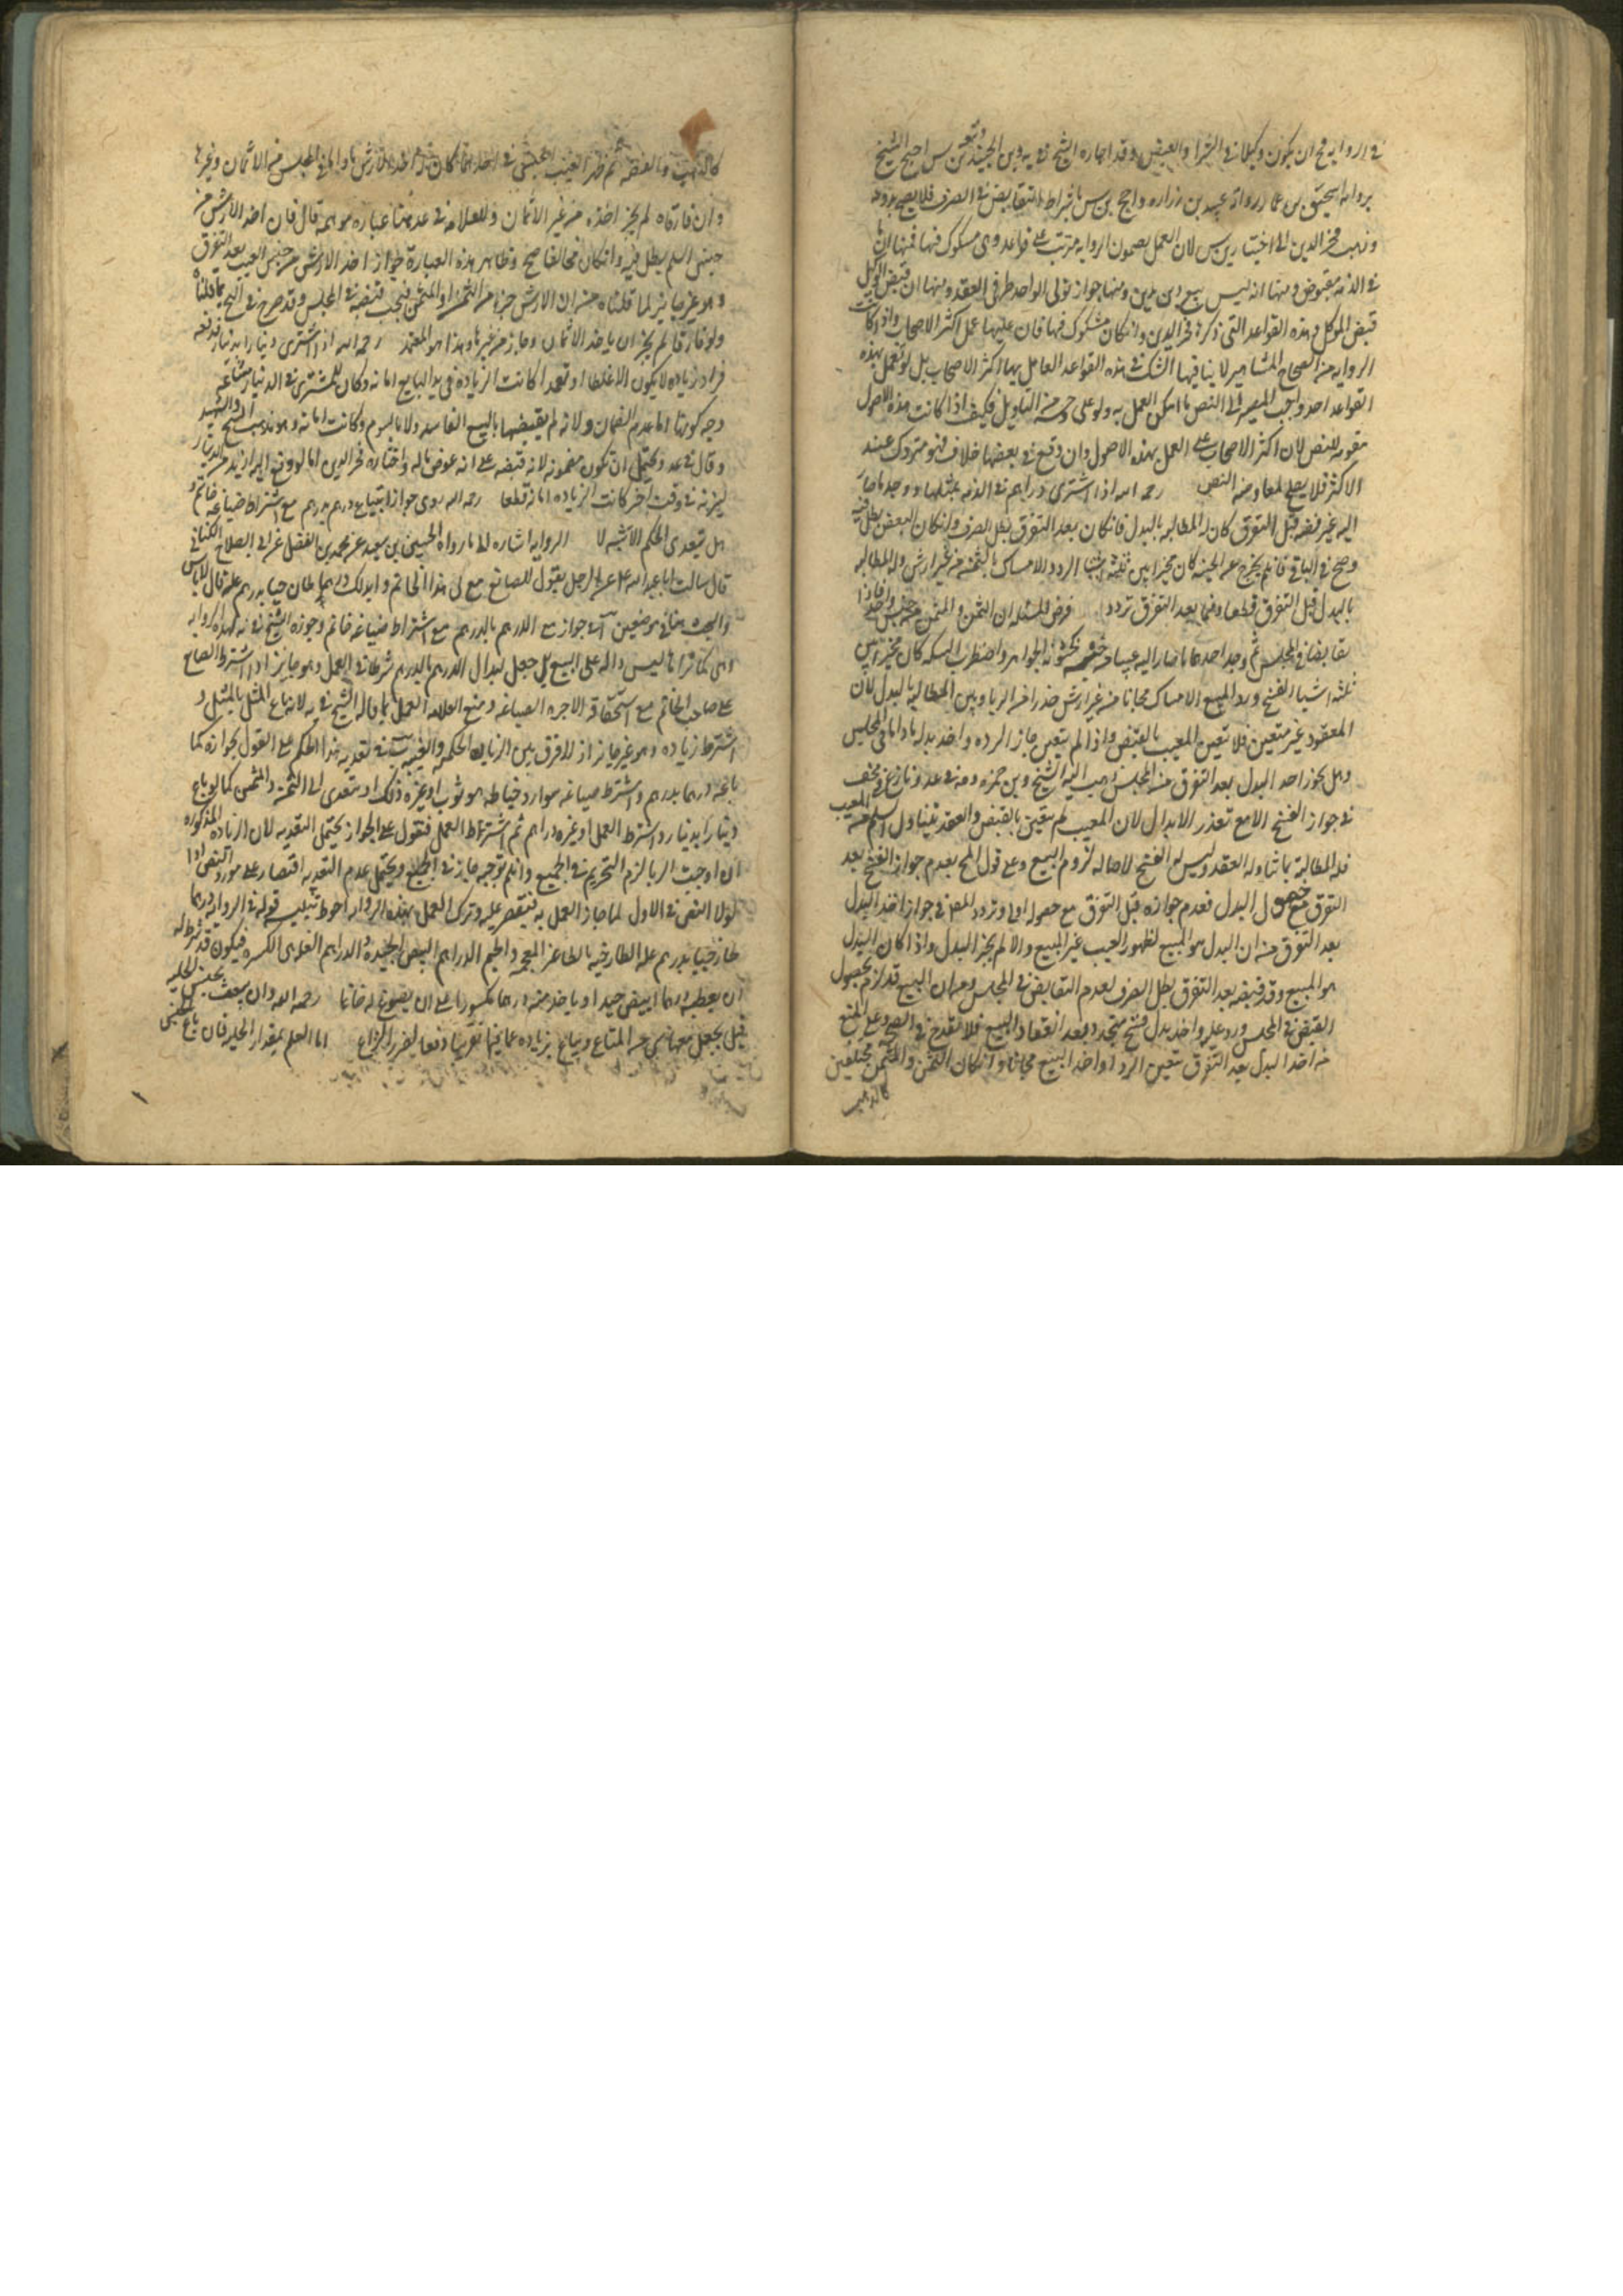 في الرواية ان يكون وكيلا في الشراء والقبض وقد اجازه الشيخ في يه وبن الجنيد وتبعه بن س احتج الشيخ
برواية اسحق بن عمار ورواة عبيد بن زراره واحتج بن س باشتراط التقابض في الصرف فلا يصح بدونه
وذهب فخر الدين الى اختيار بن س لان العمل بمضمون الرواية مترتب على قواعد وهي مشكوك فيها فمنها ان ما
في الذمه مقبوض ومنها انه ليس بيع دين بدين ومنها جواز تولي الواحد طرفي العقد ومنها ان قبض الوكيل
قبض الموكل وهذه القواعد التي ذكرها فخر الدين وان كان مشكوك فيها فان عليها عمل اكثر الاصحاب واذا كانت
الروايه من الصحاح المشاهير لا ينافيها الشك في هذه القواعد العامل بها اكثر الاصحاب بل لو لم يعمل بهذه
القواعد احد وجب المصير الى النص ما امكن العمل به ولو على وجه من التاويل فكيف اذا كانت هذه الاصول
مقويه للنص لان اكثر الاصحاب على العمل بهذه الاصول وان وقع في بعضها خلاف فهو متروك عند
الاكثر فلا يصلح لمعارضة النص رحمه الله اذا اشترى دراهم في الذمه بمثلها ووجد ما صار
اليه غير فضه قبل التفرق كان له المطالبه بالبدل فان كان بعد التفرق بطل الصرف وان كان البعض بطل فيه
وصح في الباقي فان لم يخرج عن الجنسيه كان مخيرا بين ثلثة اشيا الرد والامساك بالثمن من غير ارش وله المطالبه
بالبدل قبل التفرق قطعا وفيما بعد التفرق تردد فرض المسئله ان الثمن والمثمن من جنس واحد فاذا
تقابضا في المجلس ثم وجد احدهما ما صار اليه عيبا من جنسه كخشونة الجواهر واضطراب السكه كان مخيرا بين
ثلثة اشياء الفسخ ورد المبيع والامساك مجانا من غير ارش حذرا من الربا وبين المطالبه بالبدل لان
المعقود غير متعين فلا يتعين المعيب بالقبض واذا لم يتعين جاز الرده واخذ بدله ما داما في المجلس
وهل يجوز اخذ البدل بعد التفرق من المجلس ذهب اليه الشيخ وبن حمزه ومه في عد ونازع في مختلف
في جواز الفسخ الا مع تعذر الابدال لان المعيب لم يتعين بالقبض والعقد يتناول السليم عن العيب
فله المطالبة بما تناوله العقد وليس له الفسخ لاصاله لزوم البيع وعلى قول المخ بعدم جواز الفسخ بعد
التفرق مع حصول البدل فعدم جوازه قبل التفرق مع حصوله اولى وتردد المص في جواز اخذ البدل
بعد التفرق من ان البدل هو المبيع لظهور العيب غير المبيع والا لم يجز البدل واذا كان البدل
هو المبيع وقد قبضه بعد التفرق بطل الصرف لعدم التقابض في المجلس ومن ان البيع قد لزم بحصول
القبض في المجلس ورد عليه واخذ بدل فسخ متجدد بعد انعقاد البيع فلا يقدح في الصحه وعلى المنع
من اخذ البدل بعد التفرق يتعين الرد او اخذ المبيع مجانا وان كان الثمن والمثمن مختلفين
كالذهب
كالذهب والفضه ثم ظهر العيب الجنسي في احدهما كان له اخذ الارش ما داما في المجلس من الاثمان وغيرها
وان فارقاه لم يجز اخذه من غير الاثمان وللعلامه في عد هنا عباره موهمه قال فان اخذ الارش من
جنس السليم بطل فيه وان كان مخالفا صح وظاهر هذه العبارة جواز اخذ الارش من جنس المعيب بعد التفرق
وهو غير جايز لما قلناه من ان الارش جزء من الثمن او المثمن فيجب قبضه في المجلس وقد صرح في التحرير بما قلناه
ولو فارقا لم يجز ان ياخذ الاثمان وجاز من غيرها وهذا هو المعتمد رحمه الله اذا اشترى دينارا بدينار فدفعه
فزاد زياده لا يكون الا غلطا او تعمدا كانت الزياده في يد البايع امانه وكان للمشتري في الدينار مشاعه
وجه كونها امانه عدم الضمان ولانه لم يقبضها بالبيع الفاسد ولا بالسوم وكانت امانه وهو مذهب الشيخ والشهيد
وقال في عد ويحتمل ان تكون مضمونه لانه قبضه على انه عوض ماله واختاره فخر الدين اما لو وقع اليه ازيد من الدينار
ليزنه في وقت اخر كانت الزياده امانة قطعا رحمه الله روى جواز ابتياع درهم بدرهم مع اشتراط صياغة خاتم و
هل يتعدى الحكم الاشبه لا الروايه اشاره الى ما رواه الحسين بن سعيد عن محمد بن الفضل عن ابي الصلاح الكناني
قال سالت ابا عبد الله عليه عن الرجل يقول للصايغ صغ لي هذا الخاتم وابدلك درهما طازجيا بدرهم غله قال لا باس
والبحث هنا في موضعين آ في جواز بيع الدرهم بالدرهم مع اشتراط صياغة خاتم وجوزه الشيخ في يه لهذه الروايه
وهي كما تراها ليس داله على البيع بل جعل ابدال الدرهم بالدرهم شرطا في العمل وهو جايز اذا اشترط الصايغ
على صاحب الخاتم مع استحقاقه الاجره الصياغه ومنع العلامه العمل بما قاله الشيخ في يه لانه باع المثل بالمثل و
اشترط زياده وهو غير جايز اذ لا فرق بين الزيادة الحكميه والعينيه ب في تعديه هذا الحكم على القول بجوازه كما
باعه درهما بدرهم واشترط صياغه سوار او خياطه ثوب او غير ذلك او يتعدى الى الثمن والمثمن كما لو باع
دينارا بدينار واشترط العمل او عشره دراهم ثم اشتراط العمل فنقول على الجواز يحتمل التعديه لان الزياده المذكوره
ان اوجبت الربا لزم التحريم في الجميع وان لم توجبه جاز في الجميع ويحتمل عدم التعديه اقتصارا على مورد النص اذ
لولا النص في الاول لما جاز العمل به فيقتصر عليه وترك العمل بهذه الروايه احوط تنبيه قوله في الروايه درهما
طازجيا بدرهم غله الطازجيه بالطاء غير المعجمه والجيم الدراهم البيض الجيده والدراهم الغله هي المكسره فيكون قد شرط له
ان يعطيه درهما ابيض جيدا وياخذ منه درهما مكسورا على ان يصوغ له خاتما رحمه الله وان بيعت بجنس الحليه
قيل يجعل معها شي من المتاع ويباع بزياده عما فيها تقريبا دفعا لضرر النزاع اما العلم بمقدار الحليه فان باع